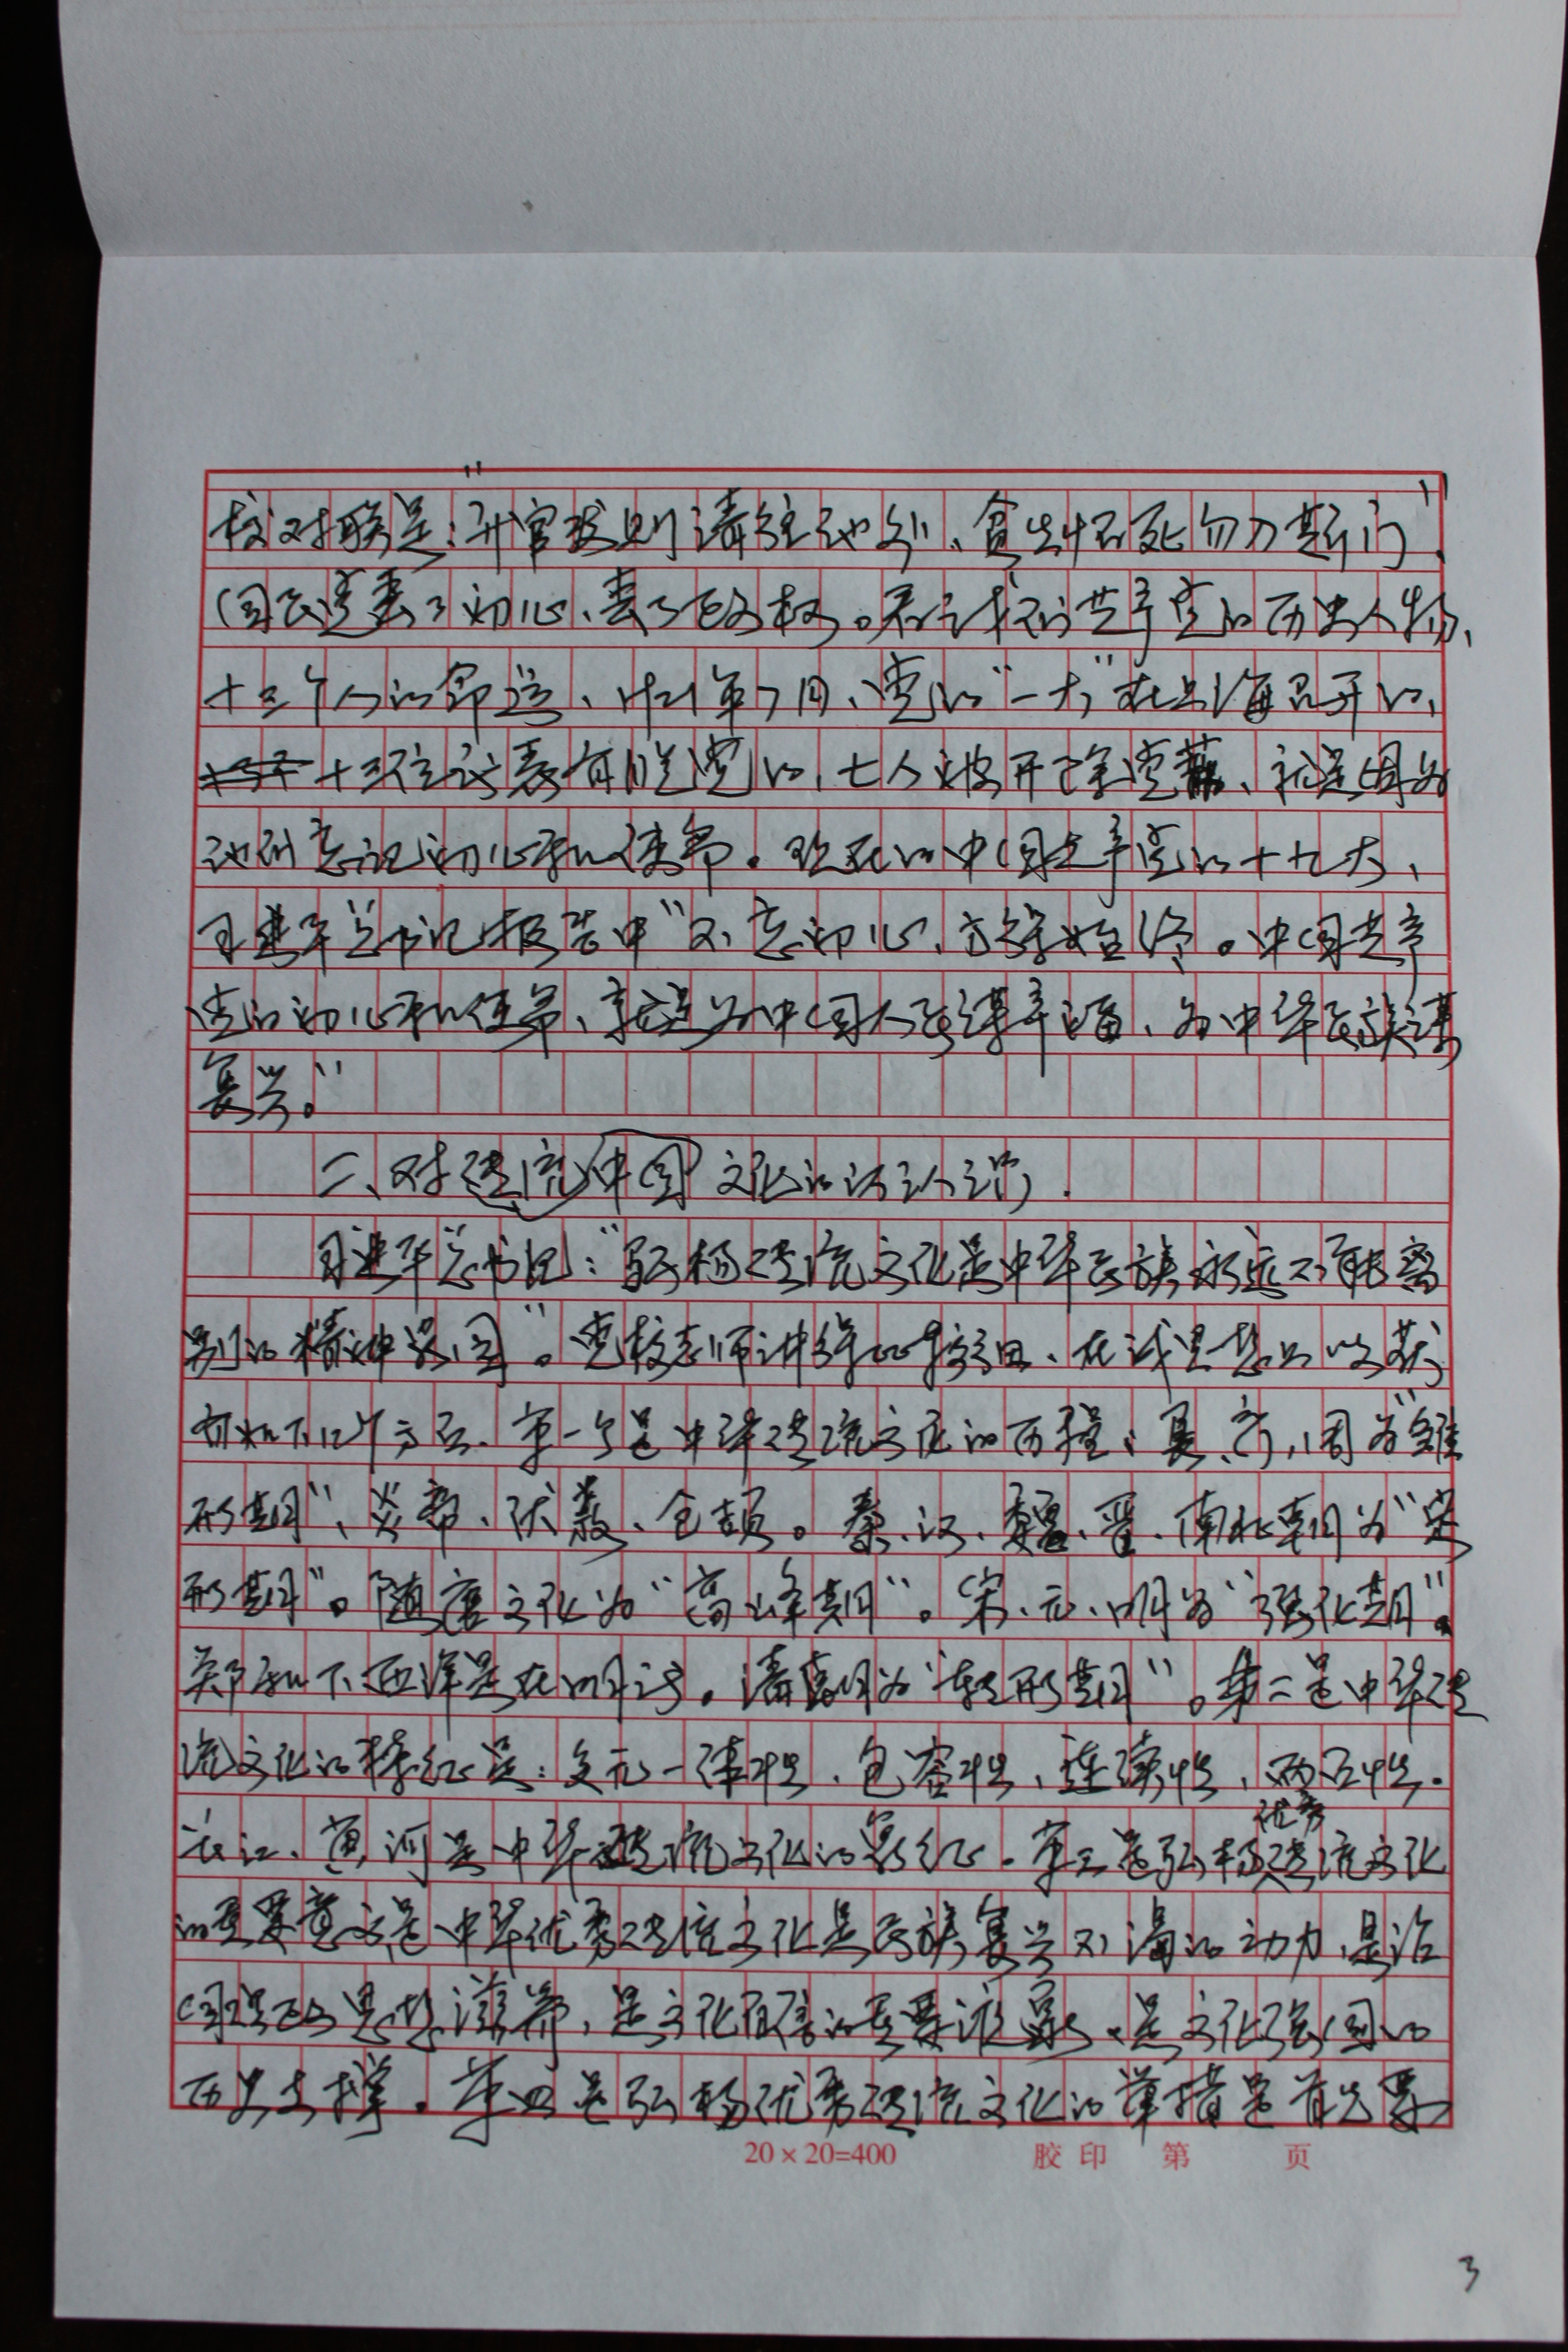 校对联是:"升官发财请往他处、贪生怕死勿入斯门"。
国民党丢了初心、丢了政权。看我们共产党的历史人物、
十三个人的命运、1921年7月、党的"一大"在上海召开的,
十三位代表有脱党的,七人被开除党籍、就是因为
他们忘记初心和使命。现在的中国共产党的十九大、
习近平总书记报告中"不忘初心、方得始终。中国共产
党的初心和使命、就是为中国人民谋幸福、为中华民族谋
复兴。"
二、对中国传统文化的认识.
习近平总书记:"弘扬传统文化是中华民族永远不能离
别的精神家园"。党校老师讲得比较细、在我思想上收获
有如下四个方面.第一个是中华传统文化的历程、夏、商、周为"雏
形期"、炎帝、伏羲、仓颉。秦、汉、魏、晋、南北朝为"定
形期"。随唐文化为"高峰期"。宋、元、明为"强化期"。
郑和下西洋是在明清。清朝为"转形期"。第二是中华传
统文化的特征是:多元一体性、包容性、连续性、两面性.
长江、黄河是中华传统文化的象征.第三是弘扬优秀传统文化
的重要意义是中华优秀传统文化是民族复兴不竭的动力,是治
国理政思想滋养,是文化自信的重要源泉、是文化强国的
历史支撑.第四是弘扬优秀传统文化的举措是首先要
20×20=400 胶印 第 页
3